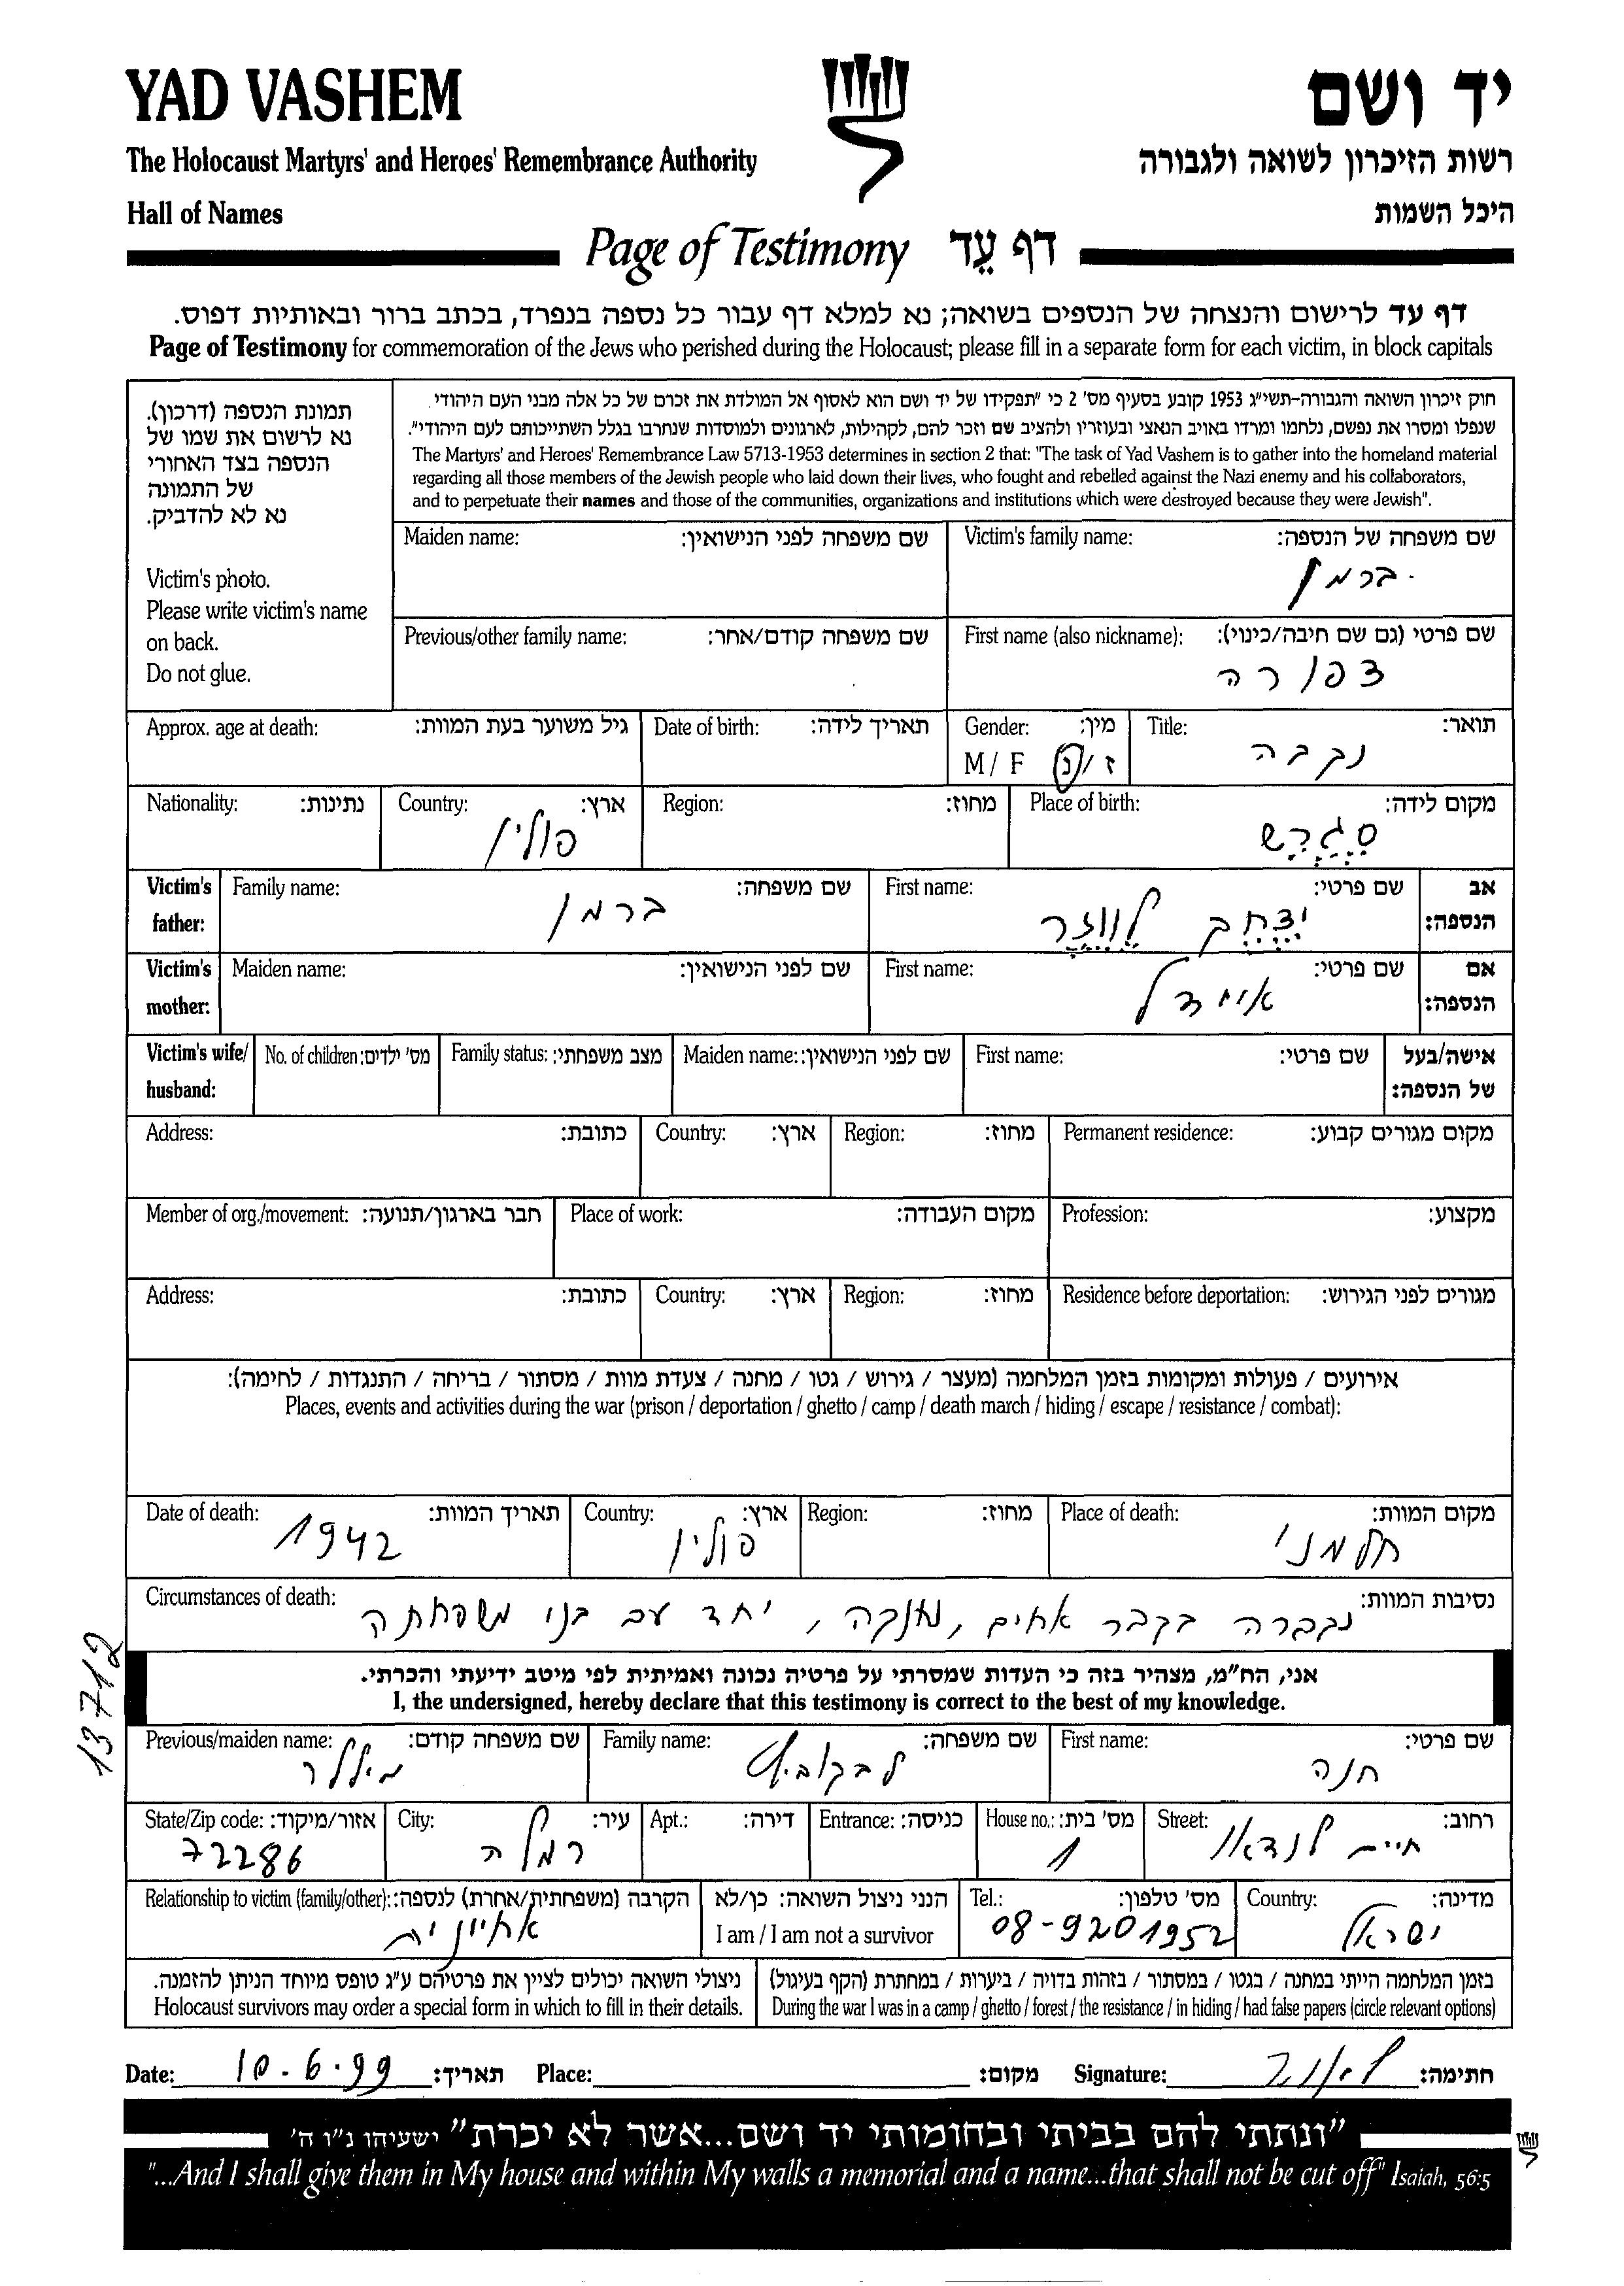 YAD VASHEM
יד ושם
The Holocaust Martyrs' and Heroes' Remembrance Authority
רשות הזיכרון לשואה ולגבורה
Hall of Names
היכל השמות
Page of Testimony דף עֵד
דף עד לרישום והנצחה של הנספים בשואה; נא למלא דף עבור כל נספה בנפרד, בכתב ברור ובאותיות דפוס.
Page of Testimony for commemoration of the Jews who perished during the Holocaust; please fill in a separate form for each victim, in block capitals
תמונת הנספה (דרכון).
נא לרשום את שמו של
הנספה בצד האחורי
של התמונה
נא לא להדביק.
Victim's photo.
Please write victim's name
on back.
Do not glue.
חוק זיכרון השואה והגבורה-תשי"ג 1953 קובע בסעיף מס' 2 כי "תפקידו של יד ושם הוא לאסוף אל המולדת את זכרם של כל אלה מבני העם היהודי,
שנפלו ומסרו את נפשם, נלחמו ומרדו באויב הנאצי ובעוזריו ולהציב שם וזכר להם, לקהילות, לארגונים ולמוסדות שנחרבו בגלל השתייכותם לעם היהודי".
The Martyrs' and Heroes' Remembrance Law 5713-1953 determines in section 2 that: "The task of Yad Vashem is to gather into the homeland material
regarding all those members of the Jewish people who laid down their lives, who fought and rebelled against the Nazi enemy and his collaborators,
and to perpetuate their names and those of the communities, organizations and institutions which were destroyed because they were Jewish".
Maiden name: שם משפחה לפני הנישואין:
Victim's family name: שם משפחה של הנספה:
ברמן
Previous/other family name: שם משפחה קודם/אחר:
First name (also nickname): שם פרטי (גם שם חיבה/כינוי):
צפורה
Approx. age at death: גיל משוער בעת המוות:
Date of birth: תאריך לידה:
Gender: מין:
M / F ז / נ
Title: תואר:
נקבה
Nationality: נתינות:
Country: ארץ:
פולין
Region: מחוז:
Place of birth: מקום לידה:
Victim's father:
Family name: שם משפחה:
ברמן
First name: שם פרטי:
יצחק לווזר
אב הנספה:
Victim's mother:
Maiden name: שם לפני הנישואין:
First name: שם פרטי:
איידל
אם הנספה:
Victim's wife/ husband:
No. of children: מס' ילדים:
Family status: מצב משפחתי:
Maiden name: שם לפני הנישואין:
First name: שם פרטי:
אישה/בעל של הנספה:
Address: כתובת:
Country: ארץ:
Region: מחוז:
Permanent residence: מקום מגורים קבוע:
Member of org./movement: חבר בארגון/תנועה:
Place of work: מקום העבודה:
Profession: מקצוע:
Address: כתובת:
Country: ארץ:
Region: מחוז:
Residence before deportation: מגורים לפני הגירוש:
אירועים / פעולות ומקומות בזמן המלחמה (מעצר / גירוש / גטו / מחנה / צעדת מוות / מסתור / בריחה / התנגדות / לחימה):
Places, events and activities during the war (prison / deportation / ghetto / camp / death march / hiding / escape / resistance / combat):
Date of death: תאריך המוות:
1942
Country: ארץ:
פולין
Region: מחוז:
Place of death: מקום המוות:
חלמנו
Circumstances of death: נסיבות המוות:
נקברה בקבר אחים, נחנקה, יחד עם בני משפחתה
13712
אני, הח"מ, מצהיר בזה כי העדות שמסרתי על פרטיה נכונה ואמיתית לפי מיטב ידיעתי והכרתי.
I, the undersigned, hereby declare that this testimony is correct to the best of my knowledge.
Previous/maiden name: שם משפחה קודם:
מילר
Family name: שם משפחה:
לבקוביץ
First name: שם פרטי:
חנה
State/Zip code: אזור/מיקוד:
72286
City: עיר:
רמלה
Apt.: דירה:
Entrance: כניסה:
House no.: מס' בית:
1
Street: רחוב:
חיים לנדאו
Relationship to victim (family/other): הקרבה (משפחתית/אחרת) לנספה:
אחיינית
הנני ניצול השואה: כן/לא
I am / I am not a survivor
Tel.: מס' טלפון:
08-9201952
Country: מדינה:
ישראל
ניצולי השואה יכולים לציין את פרטיהם ע"ג טופס מיוחד הניתן להזמנה.
Holocaust survivors may order a special form in which to fill in their details.
בזמן המלחמה הייתי במחנה / בגטו / במסתור / בזהות בדויה / ביערות / במחתרת (הקף בעיגול)
During the war I was in a camp / ghetto / forest / the resistance / in hiding / had false papers (circle relevant options)
Date: 10.6.99 תאריך:
Place: מקום:
Signature: חתימה:
"ונתתי להם בביתי ובחומותי יד ושם...אשר לא יכרת" ישעיהו נ"ו ה'
"...And I shall give them in My house and within My walls a memorial and a name...that shall not be cut off" Isaiah, 56:5